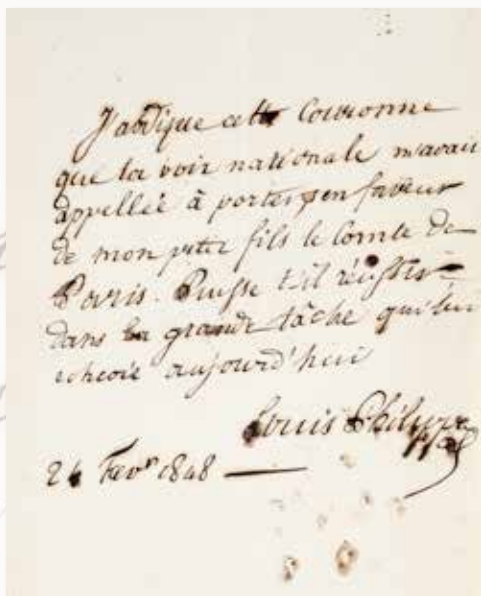 J'abdique cette Couronne
que la voix nationale m'avait
appellée à porter, en faveur
de mon petit fils le Comte de
Paris. Puisse t'il réussir
dans la grande tâche qui lui
echoie aujourd'hui
Louis Philippe
24 Fevr 1848